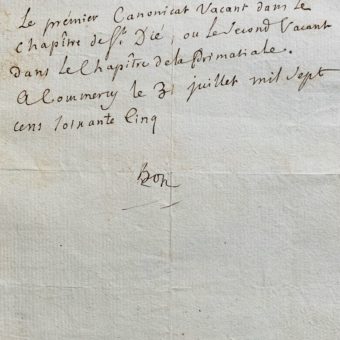 Le prémier Canonicat Vacant dans le
Chapître de St. Dié, ou le Second Vacant
dans le Chapître de la Primatiale.
A Commercy le 31 juillet mil Sept
cens Soixante Cinq
bon